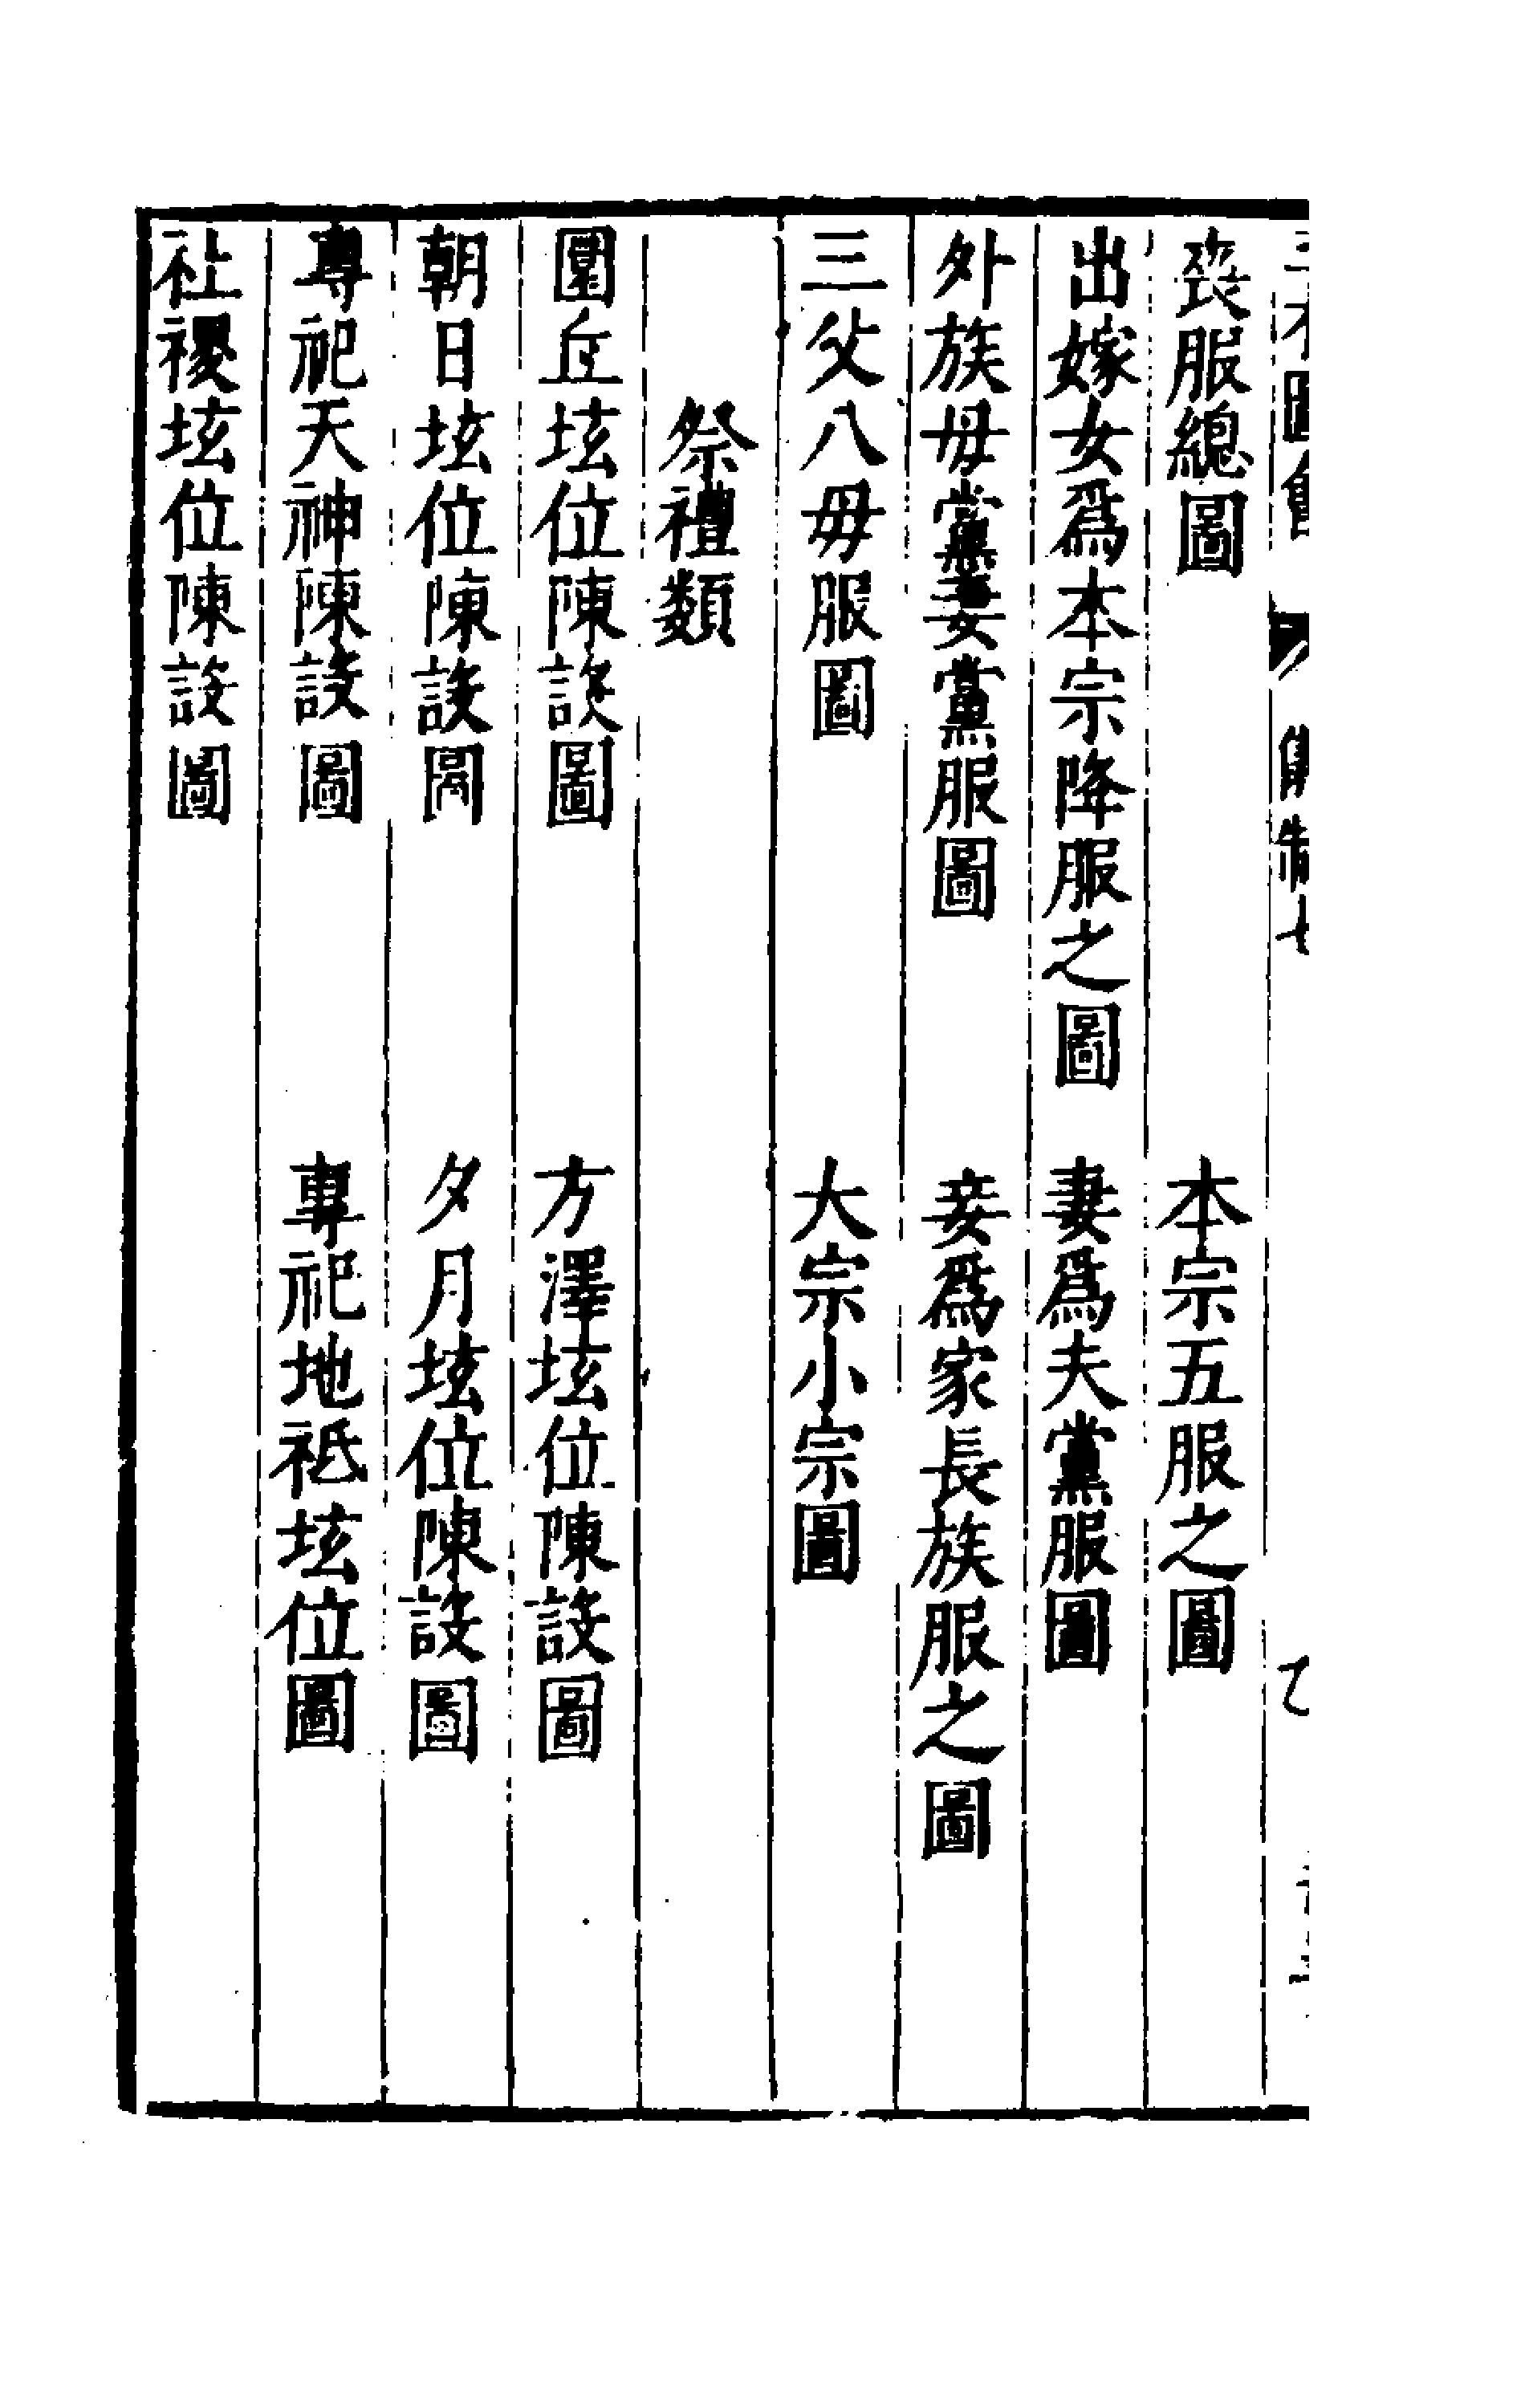 三才圖會 儀制七
喪服總圖 本宗五服之圖
出嫁女爲本宗降服之圖 妻爲夫黨服圖
外族母黨妻黨服圖 妾爲家長族服之圖
三父八母服圖 大宗小宗圖
祭禮類
圜丘坛位陳設圖 方澤坛位陳設圖
朝日坛位陳設圖 夕月坛位陳設圖
專祀天神陳設圖 專祀地祗坛位圖
社稷坛位陳設圖